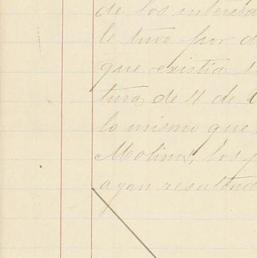 de los interesa
le tuvo por a
que existia l
tura, de 11 de
lo mismo que
Molina, los y
ayan resultado